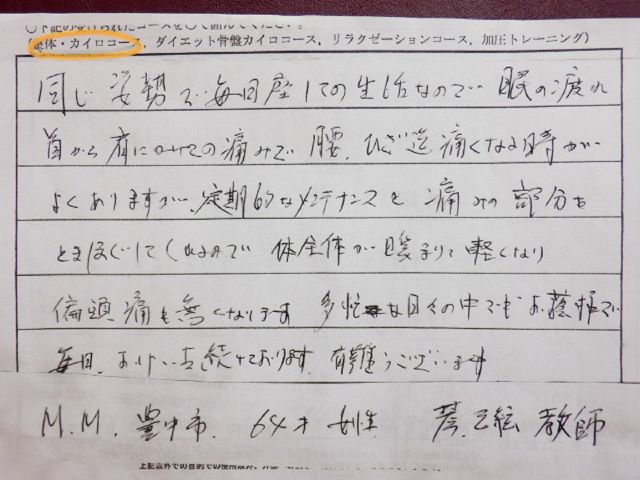 〇下記の受けられたコースを〇で囲んでください。
(整体・カイロコース, ダイエット骨盤カイロコース, リラクゼーションコース, 加圧トレーニング)
同じ姿勢で毎日座しての生活なので 眼の疲れ
首から肩にかけての痛みで 腰、ひざ迄痛くなる時が
よくありますが、定期的なメンテナンスを 痛みの部分を
ときほぐしてくれるので 体全体が暖まり軽くなり
偏頭痛も無くなります 多忙な日々の中でもお蔭様で
毎日、おけいこ続けております。有難うございます
M.M. 豊中市. 64才 女性 琴、三絃 教師
上記以外での目的での使用以外、